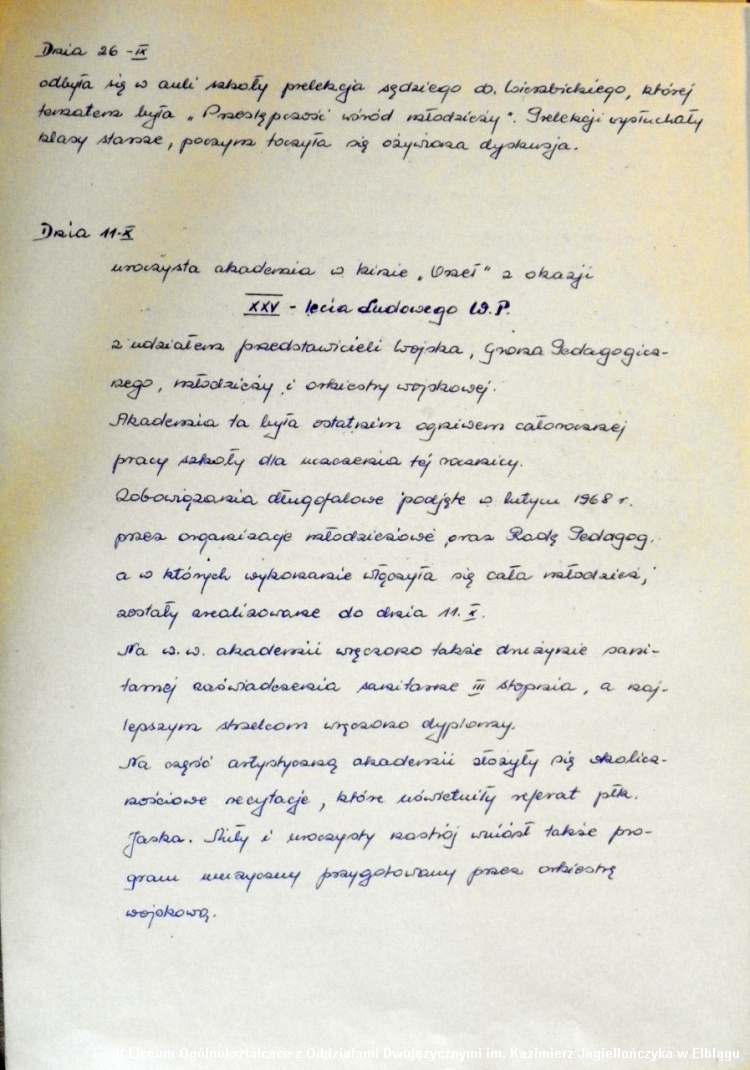 Dnia 26-IX
odbyła się w auli szkoły prelekcja sędziego ob. Wierzbickiego, której
tematem była „Przestępczość wśród młodzieży". Prelekcji wysłuchały
klasy starsze, poczym toczyła się ożywiona dyskusja.
Dnia 11-X
uroczysta akademia w kinie „Orzeł" z okazji
XXV - lecia Ludowego W.P.
z udziałem przedstawicieli Wojska, Grona Pedagogicz-
nego, młodzieży i orkiestry wojskowej.
Akademia ta była ostatnim ogniwem całorocznej
pracy szkoły dla uczczenia tej rocznicy.
Zobowiązania długofalowe podjęte w lutym 1968 r.
przez organizacje młodzieżowe oraz Radę Pedagog.
a w których wykonanie włączyła się cała młodzież,
zostały zrealizowane do dnia 11.X.
Na w.w. akademii wręczono także drużynie sani-
tarnej zaświadczenia sanitarne III stopnia, a naj-
lepszym strzelcom wręczono dyplomy.
Na część artystyczną akademii złożyły się okolicz-
nościowe recytacje, które uświetniły referat płk.
Jaska. Miły i uroczysty nastrój wniósł także pro-
gram muzyczny przygotowany przez orkiestrę
wojskową.
Liceum Ogólnokształcące z Oddziałami Dwujęzycznymi im. Kazimierz Jagiellończyka w Elblągu